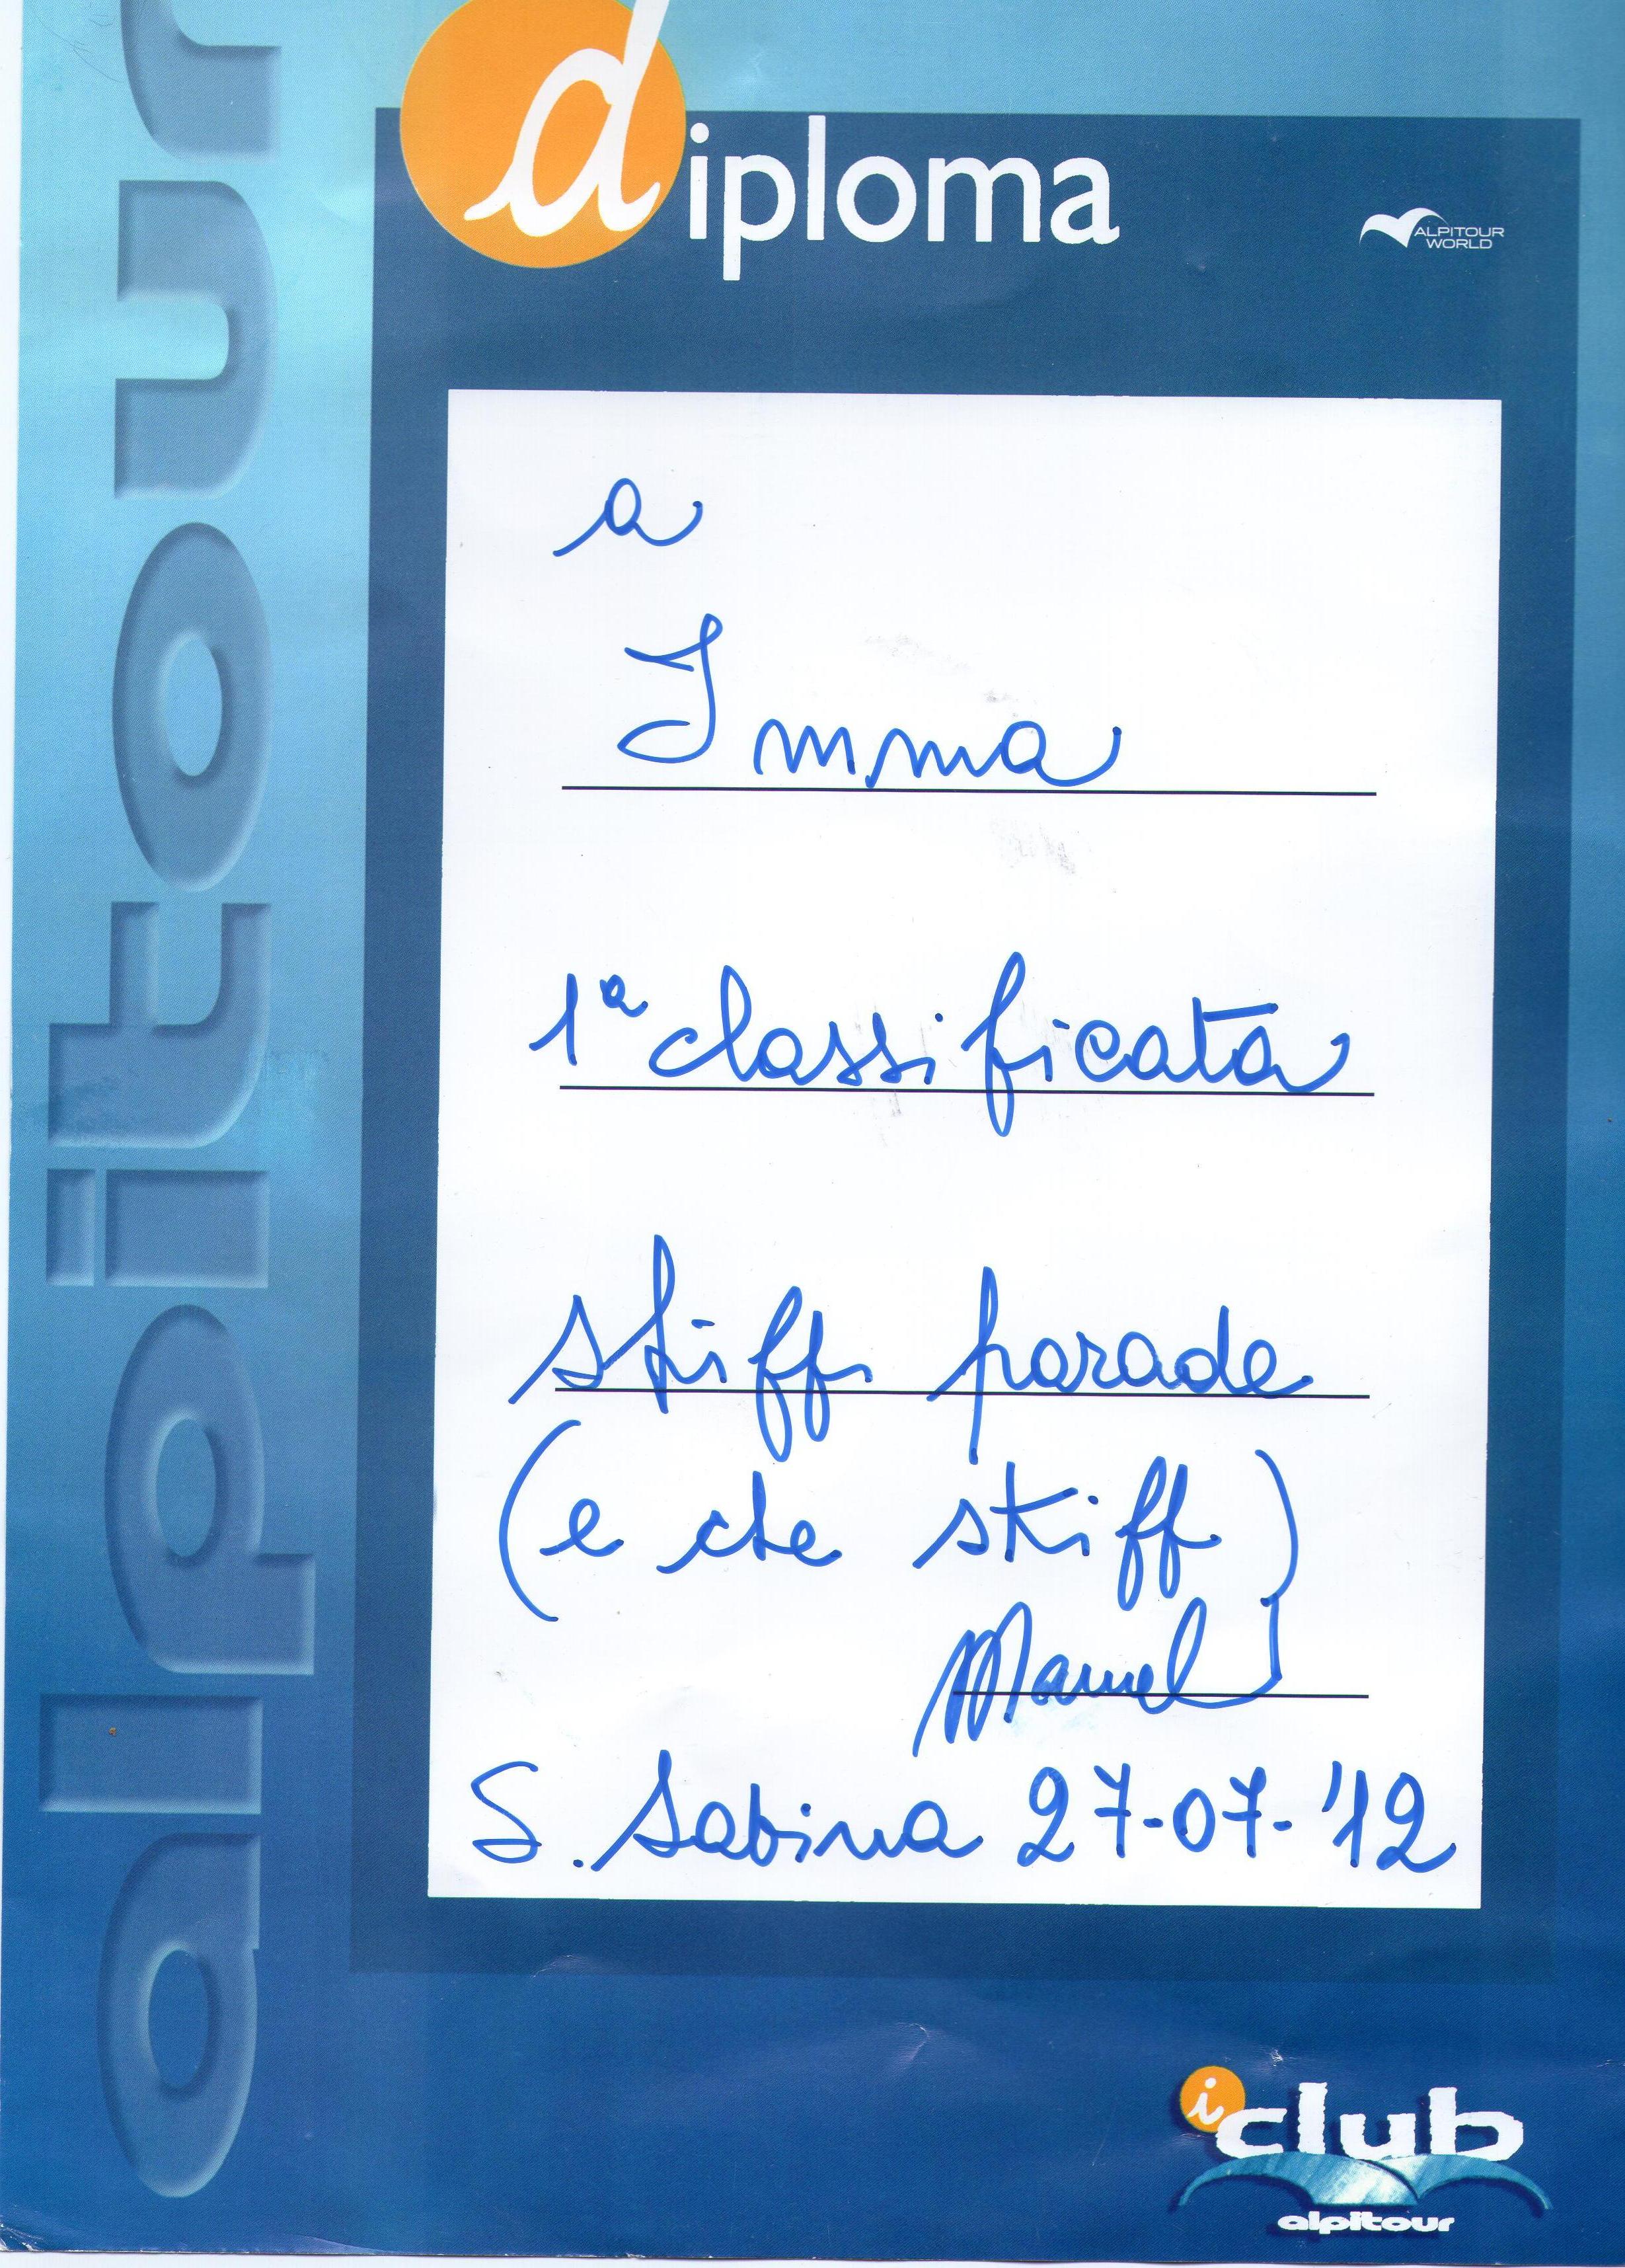 alpitour
diploma
ALPITOUR
WORLD
a
Imma
1ª classificata
stiff parade
(e che stiff)
Manuel
S. Sabina 27-07-'12
i club
alpitour